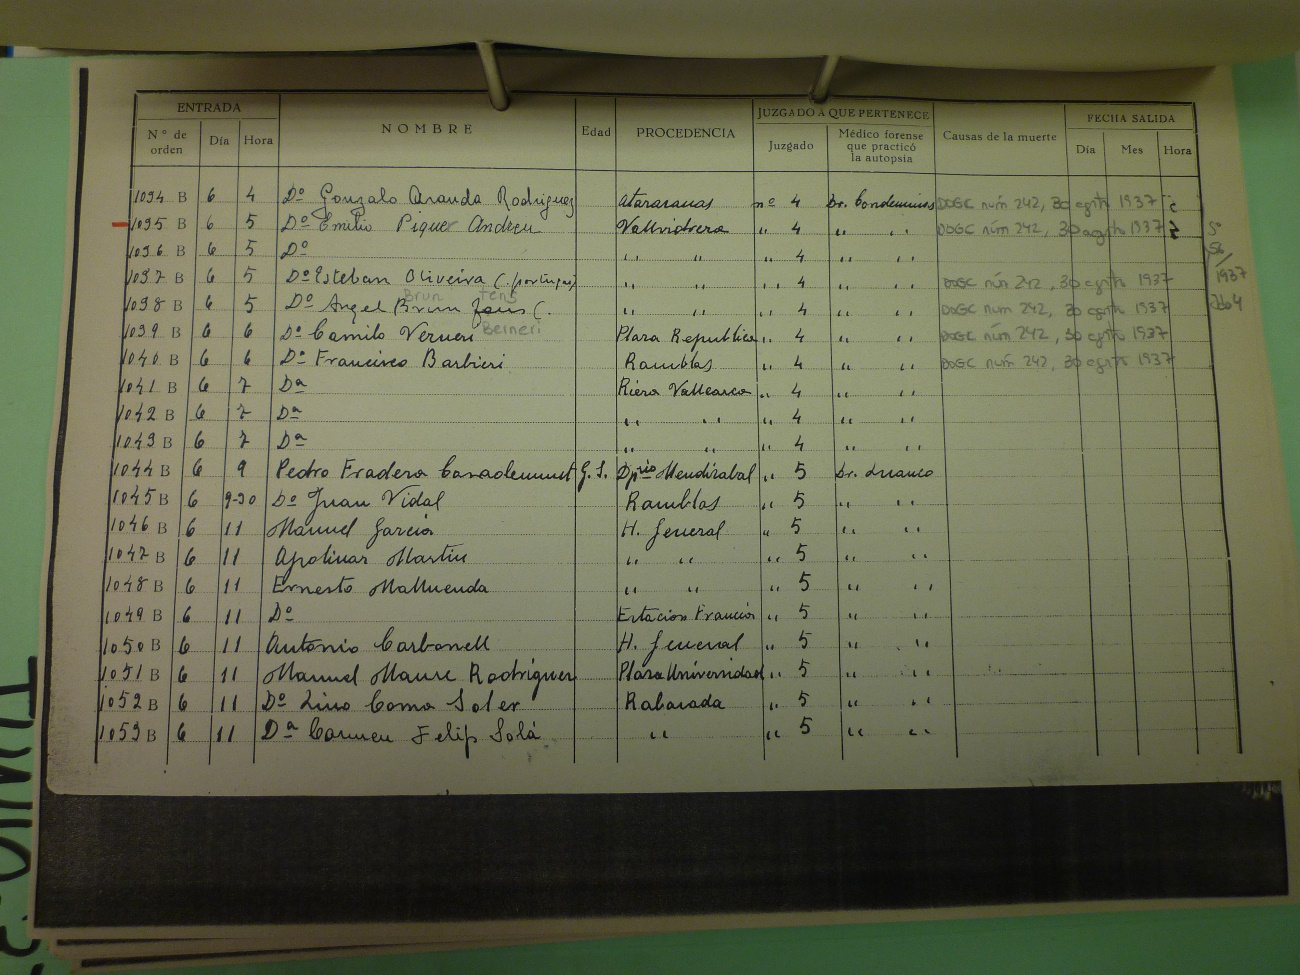 ENTRADA
NOMBRE
Edad
PROCEDENCIA
JUZGADO A QUE PERTENECE
Causas de la muerte
FECHA SALIDA
N.º de orden
Día
Hora
Juzgado
Médico forense que practicó la autopsia
Día
Mes
Hora
1034 B 6 4 Dº Gonzalo Aranda Rodriguez Atarazanas nº 4 Dr. DOGC núm 242, 30 agosto 1937
1035 B 6 5 Dº Emilio Piquer Andreu Vallvidrera " 4 " " DOGC núm 242, 30 agosto 1937
1036 B 6 5 Dº " " " 4 " "
1037 B 6 5 Dº Esteban Oliveira (portugues) " " " 4 " " DOGC núm 242, 30 agosto 1937
Brun
1038 B 6 5 Dº Angel Brun ( " " " 4 " " DOGC núm 242, 30 agosto 1937
Berneri
1039 B 6 6 Dº Camilo Verneri Plaza Republica " 4 " " DOGC núm 242, 30 agosto 1937
1040 B 6 6 Dº Francisco Barbieri Ramblas " 4 " " DOGC núm 242, 30 agosto 1937
1041 B 6 7 Dª Riera Vallcarca " 4 " "
1042 B 6 7 Dª " " " 4 " "
1043 B 6 7 Dª " " " 4 " "
1044 B 6 9 Pedro Fradera G. S. Dprio Mendizabal " 5 Dr. Luanco
1045 B 6 9-30 Dº Juan Vidal Ramblas " 5 " "
1046 B 6 11 Manuel Garcia H. General " 5 " "
1047 B 6 11 Apolinar Martin " " " 5 " "
1048 B 6 11 Ernesto Malluenda " " " 5 " "
1049 B 6 11 Dº Estacion Francia " 5 " "
1050 B 6 11 Antonio Carbonell H. General " 5 " "
1051 B 6 11 Manuel Maure Rodriguez Plaza Universidad " 5 " "
1052 B 6 11 Dº Lino Coma Soler Rabasada " 5 " "
1053 B 6 11 Dª Carmen Felip Solá " " 5 " "
1937